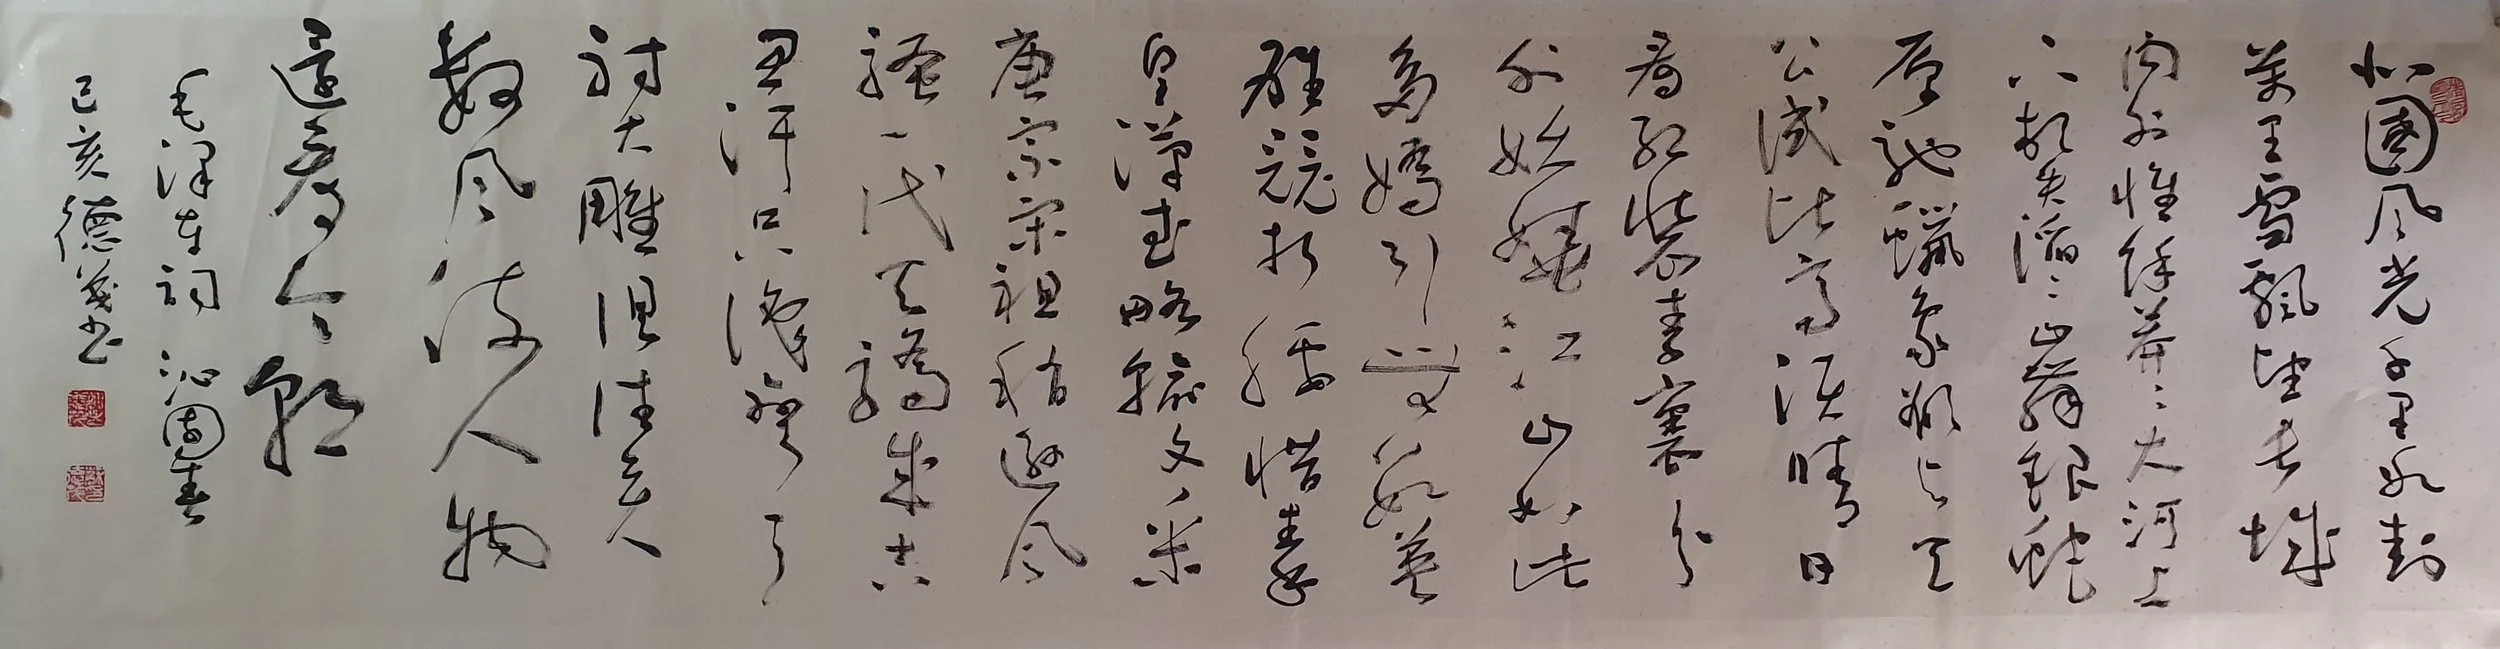 北國风光千里冰封
萬里雪飄望长城
内外惟馀莽〻大河上
下顿失滔〻山舞銀蛇
原馳蠟象欲与天
公试比高须晴日
看红装素裹分
外妖嬈江山如此
多嬌引無數英
雄競折腰惜秦
皇漢武略输文采
唐宗宋祖稍逊风
骚一代天驕成吉
思汗只識彎弓
射大雕俱往矣
數风流人物
還看今朝
毛泽东词 沁園春
己亥 德 书